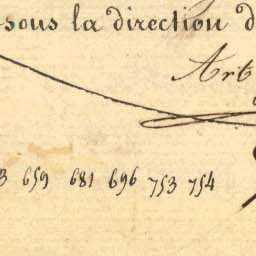 sous la direction d
Art
3 659 681 696 753 754